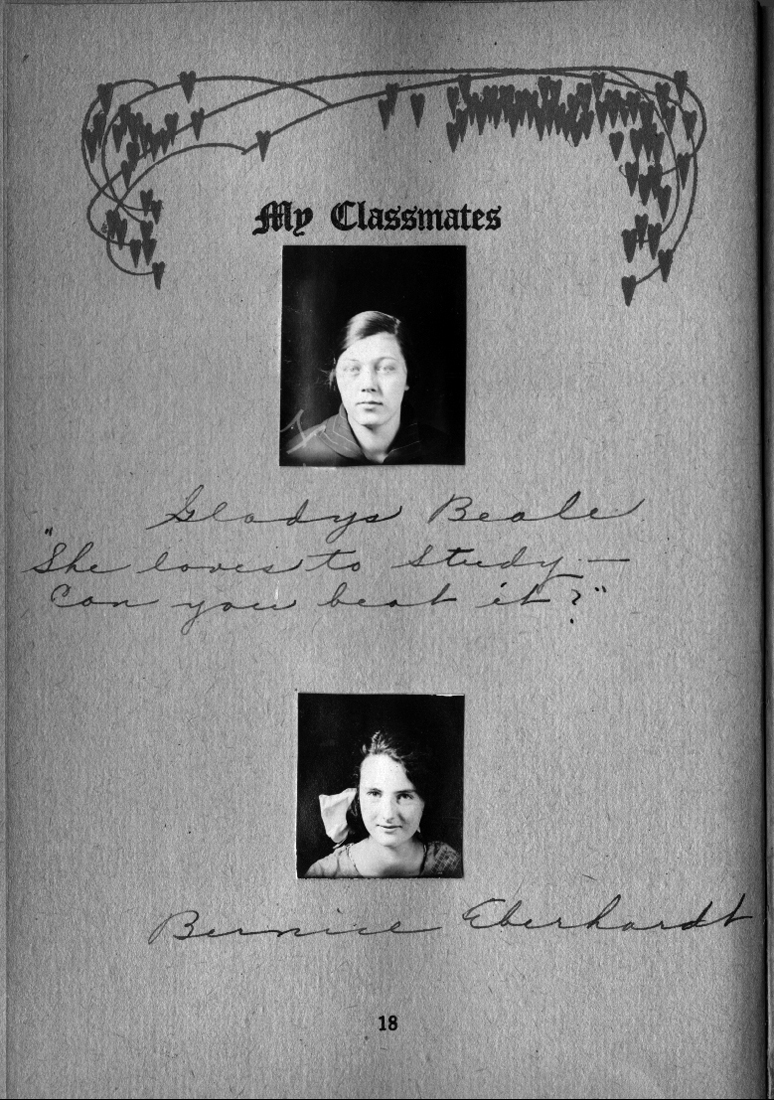 My Classmates
Gladys Beale
"She loves to study —
Can you beat it?"
Bernice Eberhardt
18